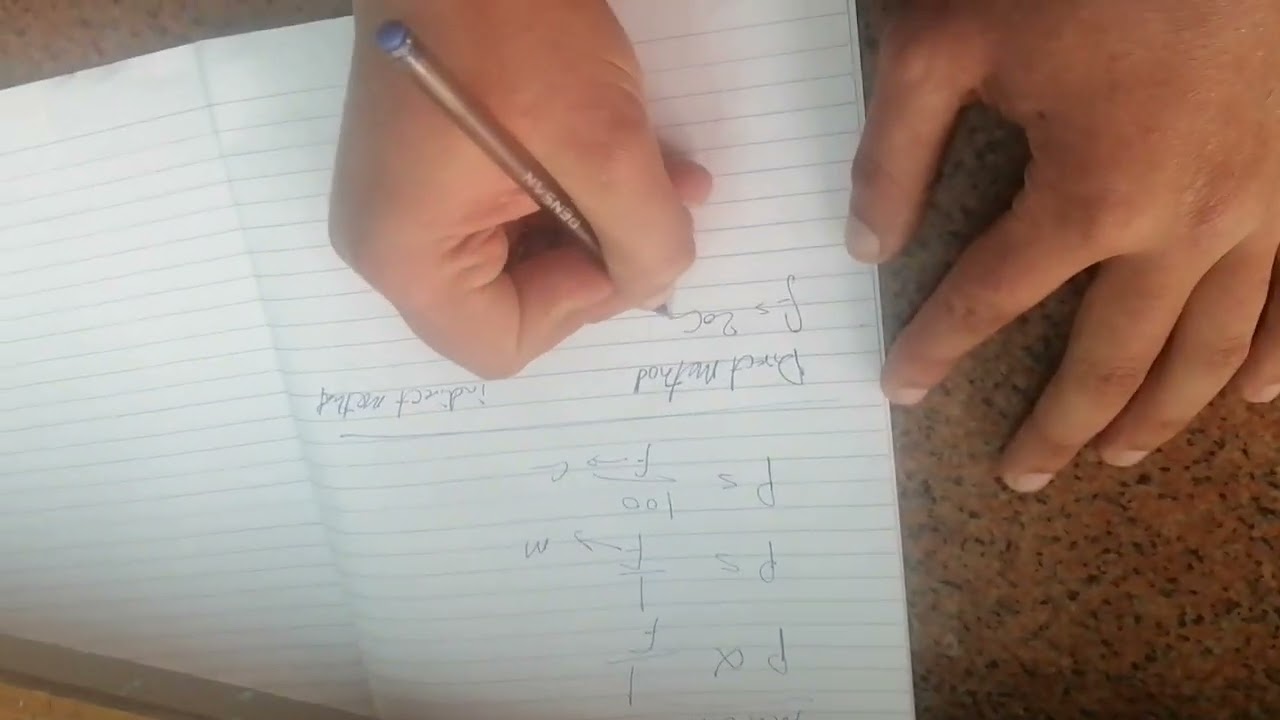 P α 1/F
P = 1/F → m
P = 100/F → c
Direct method indirect method
f = 20c
DENSAN